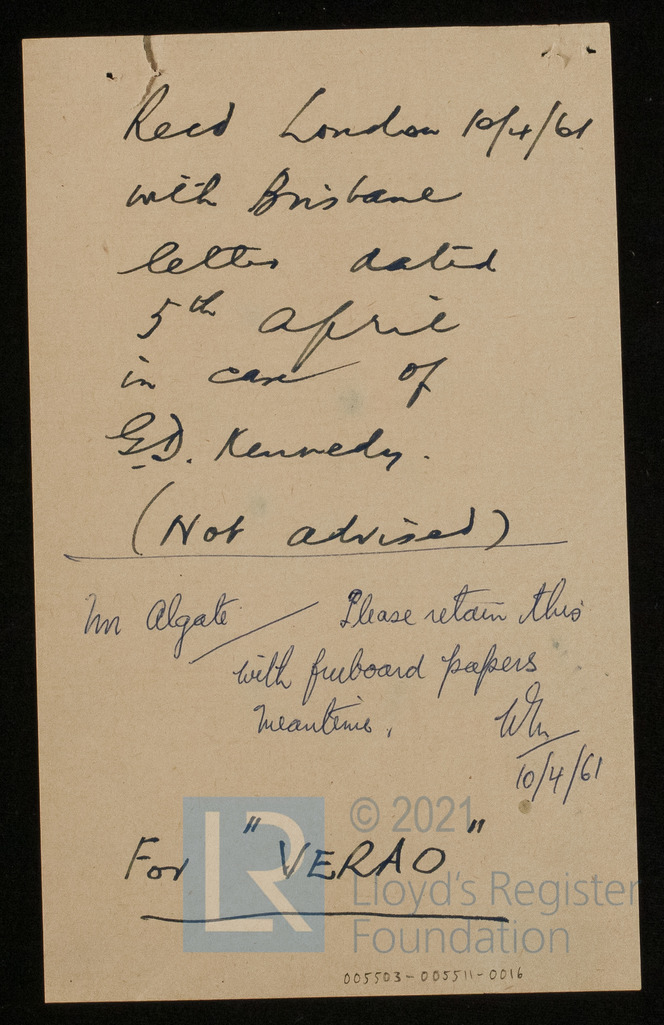 Recd London 10/4/61
with Brisbane
letter dated
5th April
in case of
G.D. Kennedy.
(Not advised)
Mr Algate / Please retain this
with freeboard papers
meantime,
10/4/61
For "VERAO"
LR
© 2021
Lloyd's Register
Foundation
005503-005511-0016